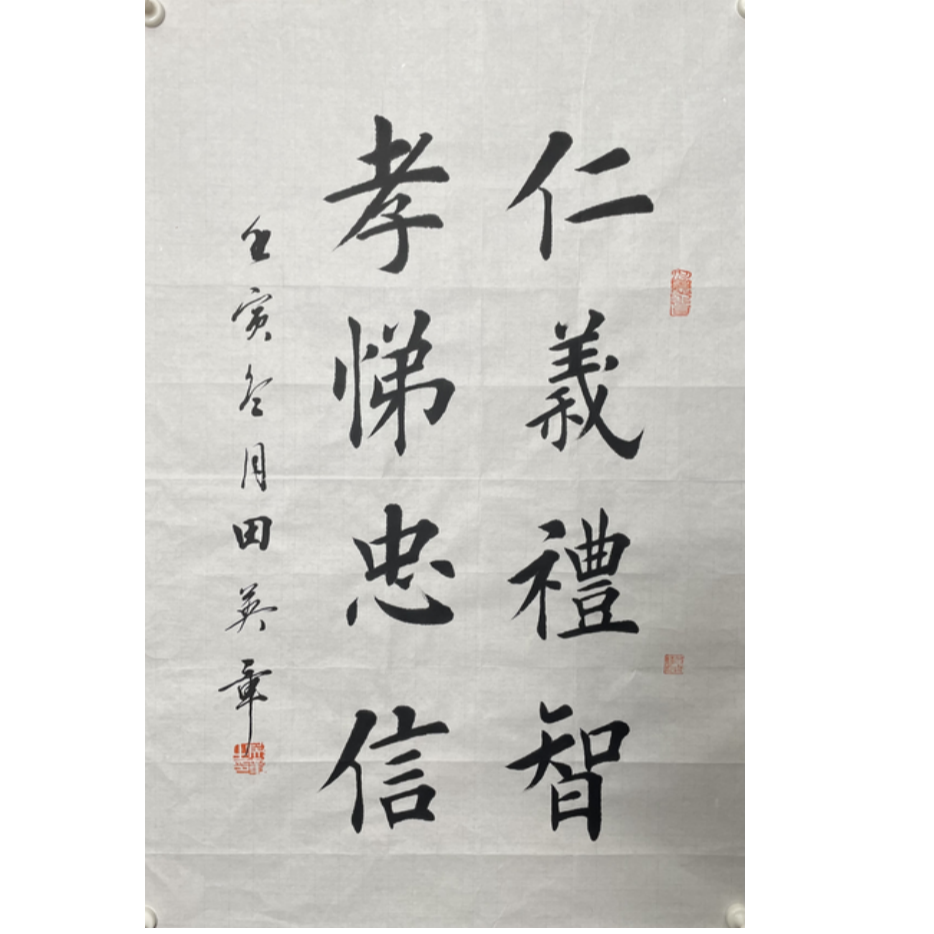 仁義禮智
孝悌忠信
壬寅冬月田英章